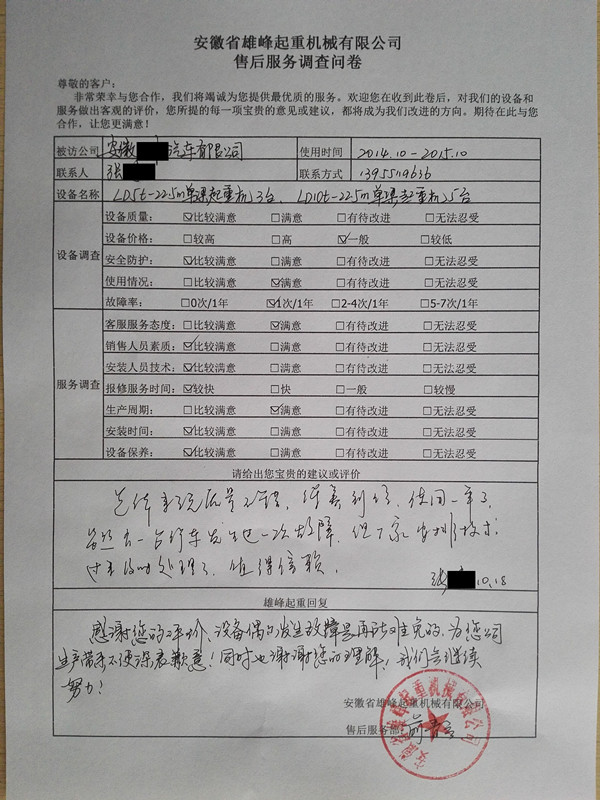 安徽省雄峰起重机械有限公司
售后服务调查问卷
尊敬的客户：
非常荣幸与您合作，我们将竭诚为您提供最优质的服务。欢迎您在收到此卷后，对我们的设备和
服务做出客观的评价，您所提的每一项宝贵的意见或建议，都将成为我们改进的方向。期待在此与您
合作，让您更满意！
被访公司 安徽 汽车有限公司 使用时间 2014.10-2015.10
联系人 张 联系方式
设备名称 LD5t-22.5m单梁起重机3台、LD10t-22.5m单梁起重机5台
设备调查
设备质量： ☑比较满意 □满意 □有待改进 □无法忍受
设备价格： □较高 □高 ☑一般 □较低
安全防护： ☑比较满意 □满意 □有待改进 □无法忍受
使用情况： □比较满意 ☑满意 □有待改进 □无法忍受
故障率： □0次/1年 ☑1次/1年 □2-4次/1年 □5-7次/1年
服务调查
客服服务态度： □比较满意 ☑满意 □有待改进 □无法忍受
销售人员素质： ☑比较满意 □满意 □有待改进 □无法忍受
安装人员技术： ☑比较满意 □满意 □有待改进 □无法忍受
报修服务时间： ☑较快 □快 □一般 □较慢
生产周期： □比较满意 ☑满意 □有待改进 □无法忍受
安装时间： ☑比较满意 □满意 □有待改进 □无法忍受
设备保养： ☑比较满意 □满意 □有待改进 □无法忍受
请给出您宝贵的建议或评价
质量不错，服务到位，使用一年了，
一台行车发生过一次故障，但厂家安排技术
过来及时处理了，值得信赖。
张 10.18
雄峰起重回复
感谢您的评价，设备偶尔发生故障是再所难免的，为您公司
生产带来不便深表歉意！同时也谢谢您的理解！我们会继续
努力！
安徽省雄峰起重机械有限公司
售后服务部：
安徽省雄峰起重机械有限公司